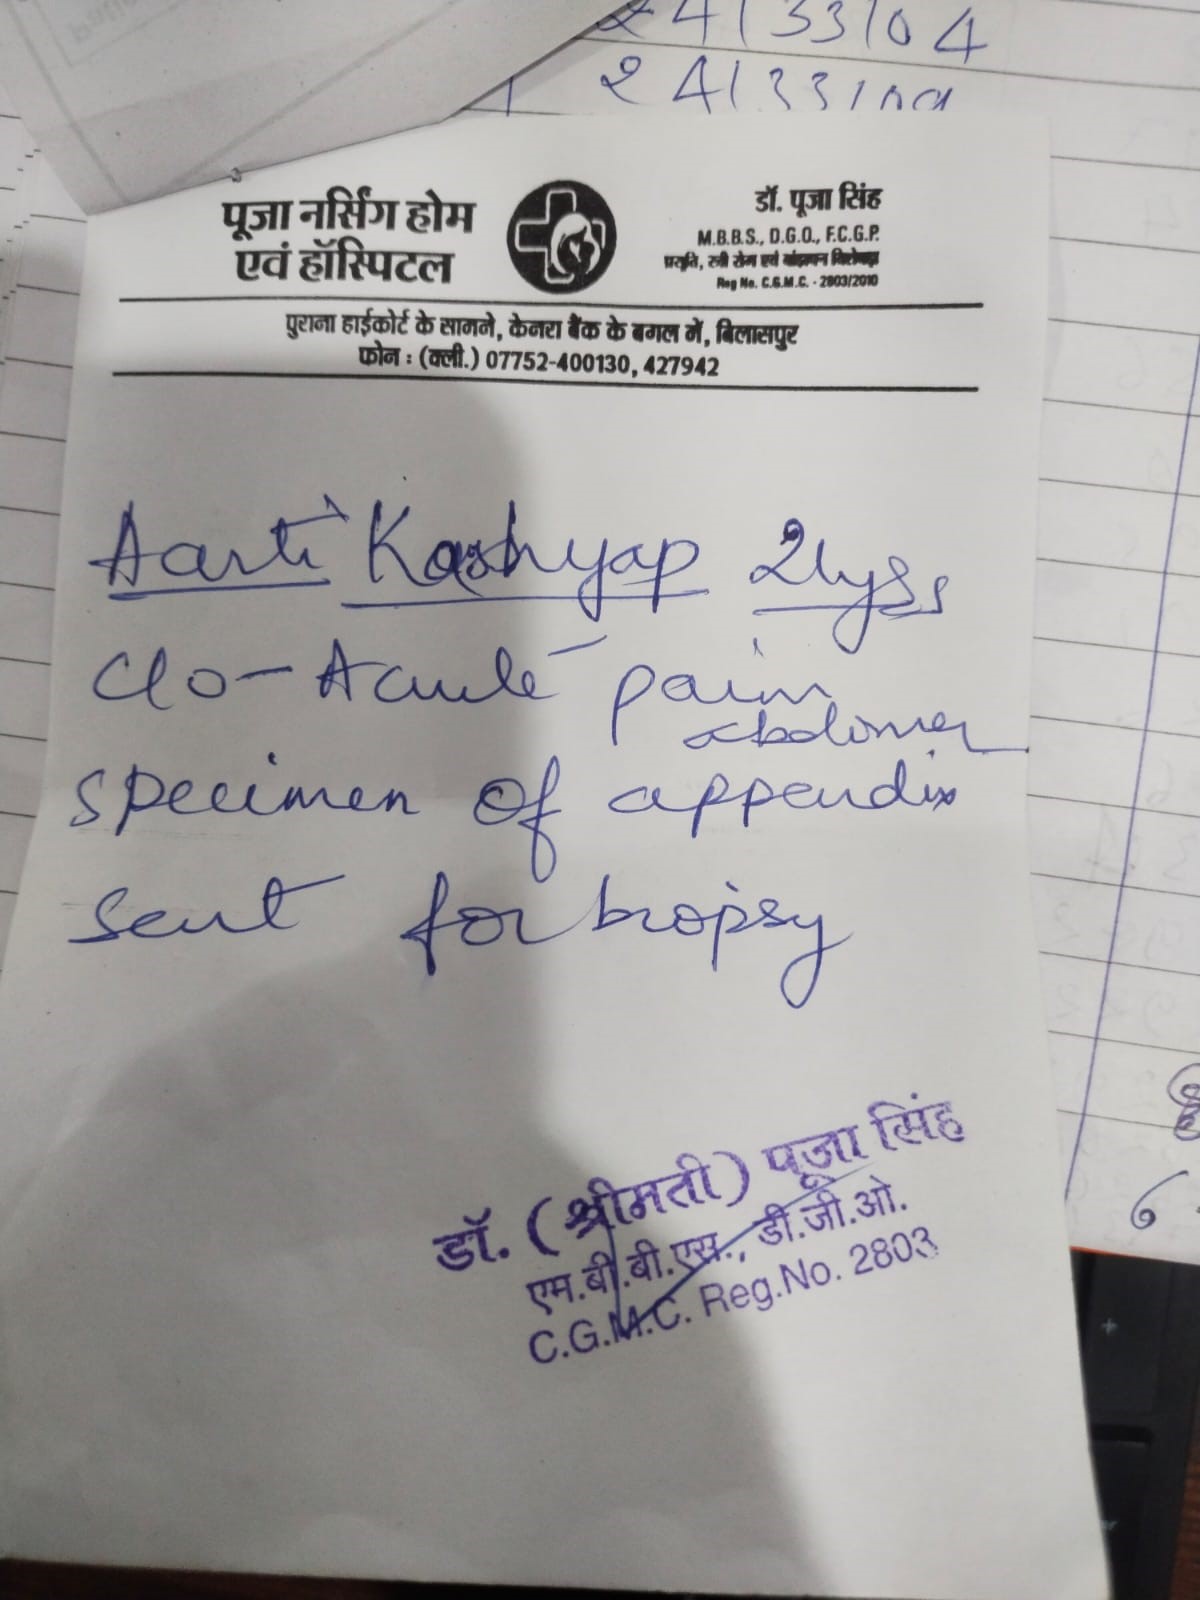 24133104
2413310
पूजा नर्सिंग होम
एवं हॉस्पिटल
डॉ. पूजा सिंह
M.B.B.S., D.G.O., F.C.G.P.
प्रसूति, स्त्री रोग एवं बांझपन विशेषज्ञ
Reg No. C.G.M.C. - 2803/2010
पुराना हाईकोर्ट के सामने, केनरा बैंक के बगल में, बिलासपुर
फोन : (क्ली.) 07752-400130, 427942
Aarti Kashyap 21yrs
C/o - Acute pain
abdomen
specimen of appendix
sent for biopsy
डॉ. (श्रीमती) पूजा सिंह
एम.बी.बी.एस., डी.जी.ओ.
C.G.M.C. Reg.No. 2803
6